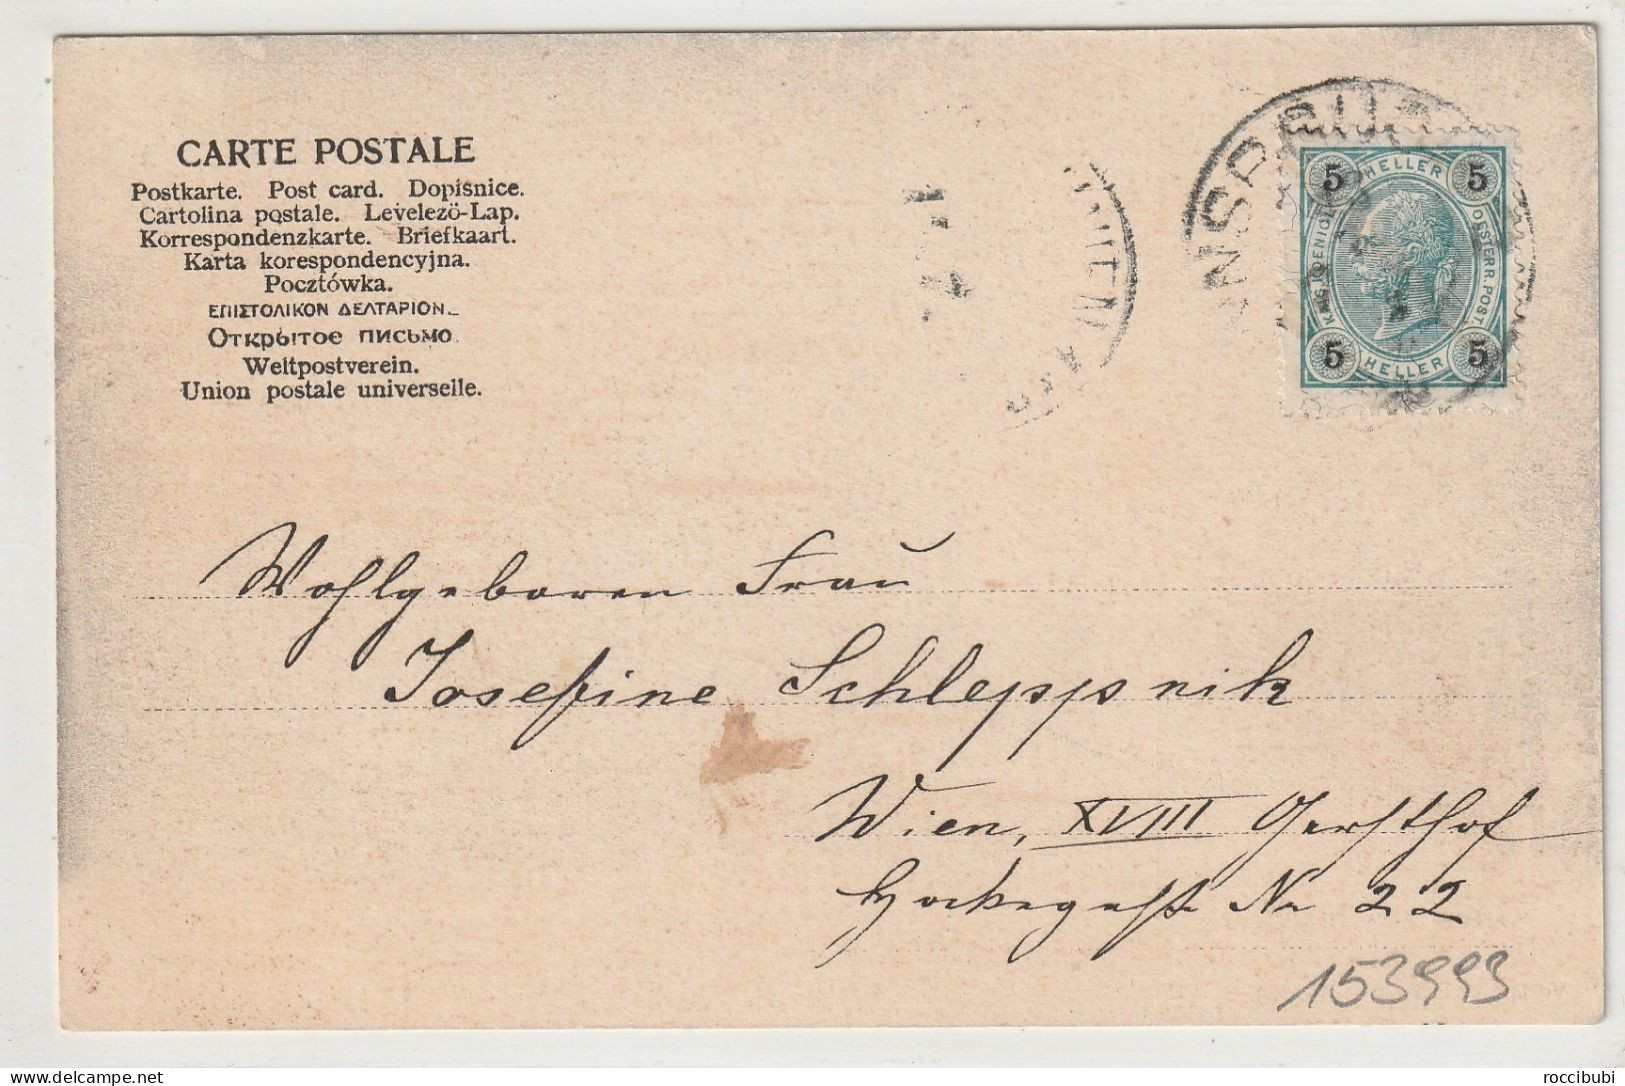 CARTE POSTALE
Postkarte. Post card. Dopisnice.
Cartolina postale. Levelezö-Lap.
Korrespondenzkarte. Briefkaart.
Karta korespondencyjna.
Pocztówka.
ΕΠΙΣΤΟΛΙΚΟΝ ΔΕΛΤΑΡΙΟΝ.
Открытое письмо.
Weltpostverein.
Union postale universelle.
WIEN
NNSBRUC
5 HELLER 5
KAIS. KOENIGL. OESTERR. POST.
5 HELLER 5
Wohlgeboren Frau
Josefine Schleppnik
Wien, XVIII Gersthof
Nr 22
153993
roccibubi